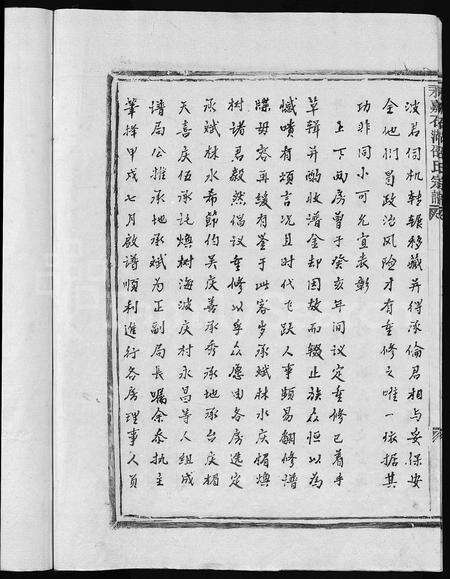 波君伺机転輾移藏并得承倫君相与安保安
全他们冒政治风险才有重修之唯一依据其
功非同小可允宜表彰
上下两房曾于癸亥年间议定重修已着手
草辑并酌收谱金却因故而辍止族众恒以为
憾啧有烦言况且时代飞跃人事频易嗣修谱
牒毋容再缓有鉴于此客岁承斌林水庆楣焕
树诸君毅然倡议重修以孚众愿由各房选定
承斌林水希節钧吴庆善承秀承地承台庆楣
天喜庆伍承託焕树海波庆村永昌等人组成
谱局公推承地承斌为正副局長嘱余忝执主
筆择甲戌七月啟谱順利進行各房理事人員
氏宗譜